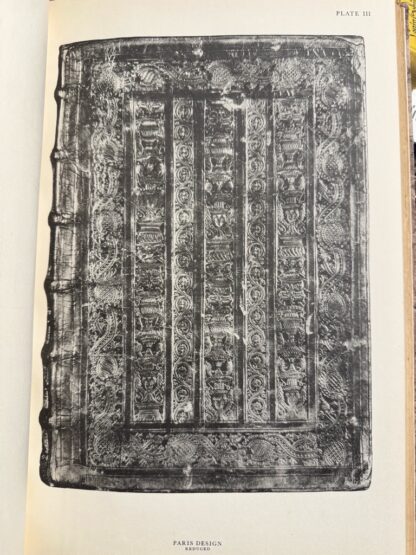 PLATE III
PARIS DESIGN
REDUCED